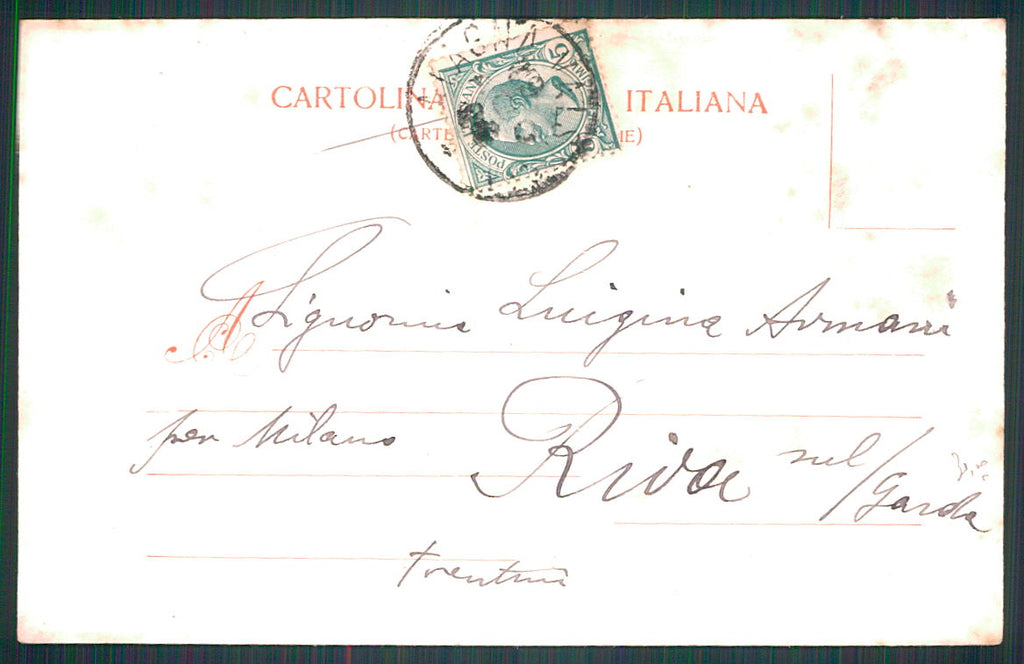 CARTOLINA ITALIANA
(CARTE
A Signorina Luigina Armani
per Milano
Riva sul/Garda
Trentino